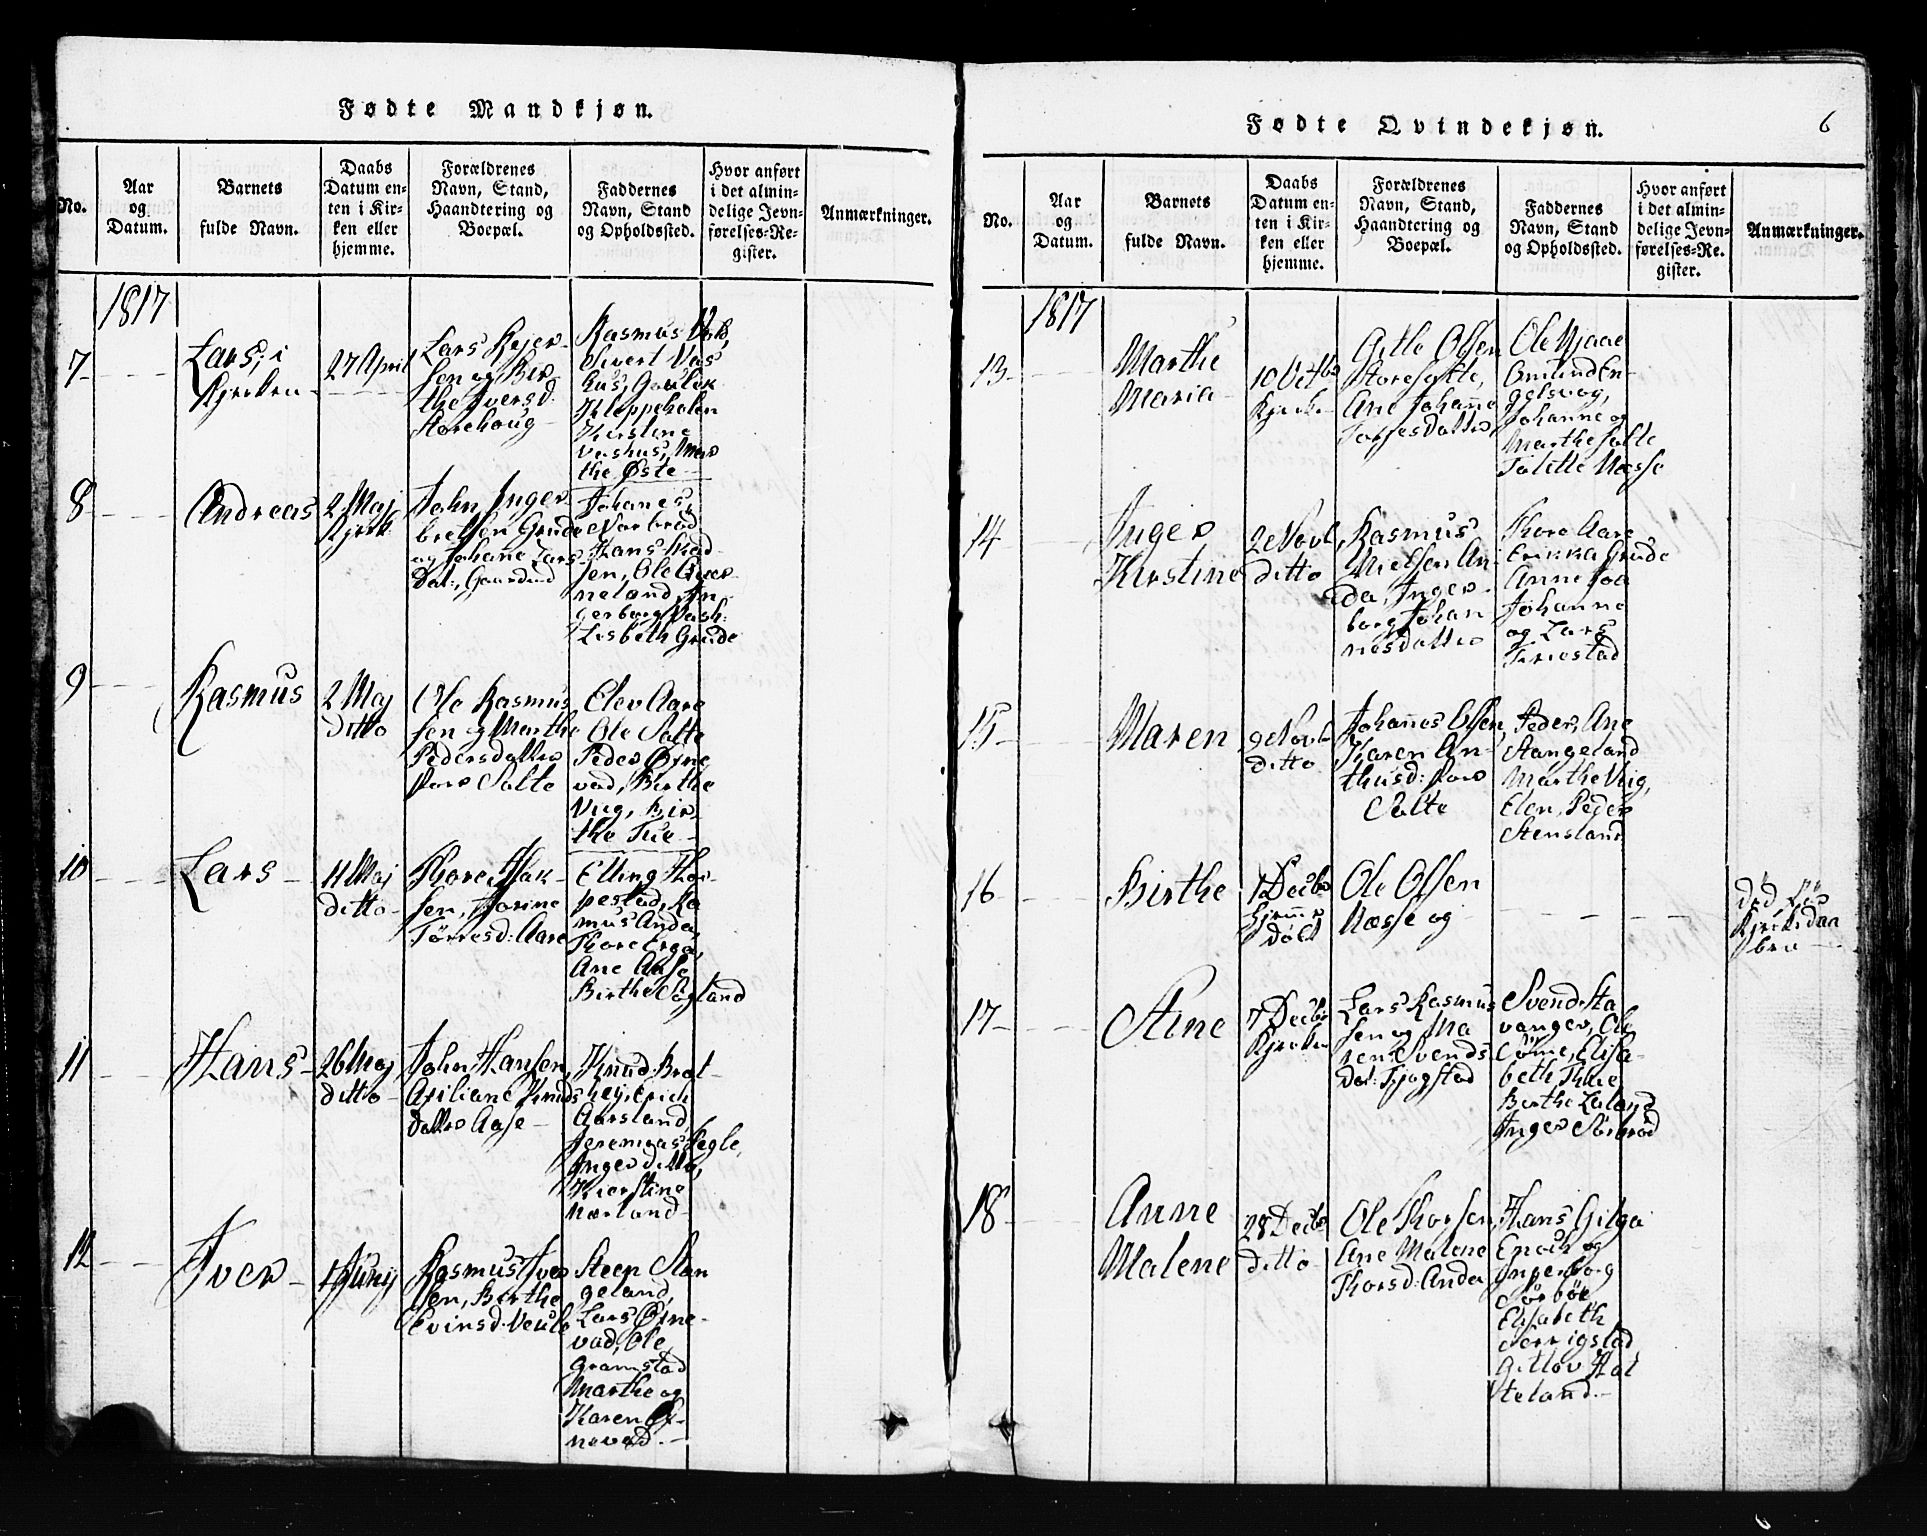 Fødte Mandkjøn.
No.
Aar
og
Datum.
Barnets
fulde Navn.
Daabs
Datum en-
ten i Kir-
ken eller
hjemme.
Forældrenes
Navn, Stand,
Haandtering og
Boepæl.
Faddernes
Navn, Stand
og Opholdssted.
Hvor anført
i det almin-
delige Jevn-
førelses-Re-
gister.
Anmærkninger.
1817
7
Lars, i
Kjerken
27 April
Lars Rejer-
sen og Bir-
the Iversd:
Storehoug
Rasmus
Sivert Vas
hus, Goulek
Kleppeholen
Kirstine
Vashus, Mar
the Øste
8
Andreas
2 Maj
Kjerk
John Inger
bretsen Grude
og Johane Lars
Dat:, Gaardmd
Johanes
Nørbrød
Hans Mad-
sen, Ole Giver-
neland, In
gerborg Vash:
Lisbeth Grude
9
Rasmus
2 Maj
ditto
Ole Rasmus
sen og Marthe
Pedersdatter
Pors Salte
Elev Aare
Ole Salte
Peder Øxne
vad, Birthe
Viig, Bir-
the Tue
10
Lars
11 Maj
ditto
Thore Isak-
sen, Thorine
Tørresd: Aare
Elling Thor-
pestad, Ra
mus Anda,
Thore Erga,
Ane Aase
Birthe Søyland
11
Hans
26 Maj
ditto
John Hansen,
Axiliane Knuds
datter Aase
Knud Brat-
hey, Erich
Aarsland,
Jeremias Tegle,
Inger ditto,
Kierstine
Nærland
12
Iver
1 Juny
Rasmus Iver
sen, Berthe
Evinsd: Veule
Steen Stan
geland,
Lars Øxne-
vad, Ole
Gramstad
Marthe og
Karen Øx-
nevad.
Fødte Qvindekjøn.
6
No.
Aar
og
Datum.
Barnets
fulde Navn.
Daabs
Datum en-
ten i Kir-
ken eller
hjemme.
Forældrenes
Navn, Stand,
Haandtering og
Boepæl.
Faddernes
Navn, Stand
og Opholdssted.
Hvor anført
i det almin-
delige Jevn-
førelses-Re-
gister.
Anmærkninger.
1817
13
Marthe
Maria
10 Octbr
Kjerke
Gitle Olsen
Storesalte,
Ane Johanne
Torjesdatter
Ole Njaae
Omund En-
gelsvog,
Johanne og
Marthe Salte
Talette Næsse
14
Inger
Kirstine
2 Novb
ditto
Rasmus
Nielsen An-
da, Inger
borg Johan
nesdatter
Thore Aare
Erikka Grude
Anne Joa
Johanne
og Lars
Friestad
15
Maren
9 Novb
ditto
Johannes Olsen
Karen An-
thusd: Pors
Salte
Peder, Ane
Stangeland
Marthe Viig,
Elen, Peder
Stensland
16
Birthe
1 Decbr
hjemme
døbt
Ole Olsen
Næsse og
død før
Kjerkedaa
ben
17
Stine
7 Decbr
Kjerken
Lars Rasmus
sen og Ma
ren Svends
Dat: Fjogstad
Svend Sta
vanger, Ole
Come, Elisa-
beth Thue,
Berthe Laland
Inger Sørbrød
18
Anne
Malene
28 Decbr
ditto
Ole Thorsen
Ane Malene
Thorsd: Anda
Hans Gilga
Enoch og
Ingerborg
Sørbøe
Elisabeth
Serrigstad
Gitlov Hat
teland.